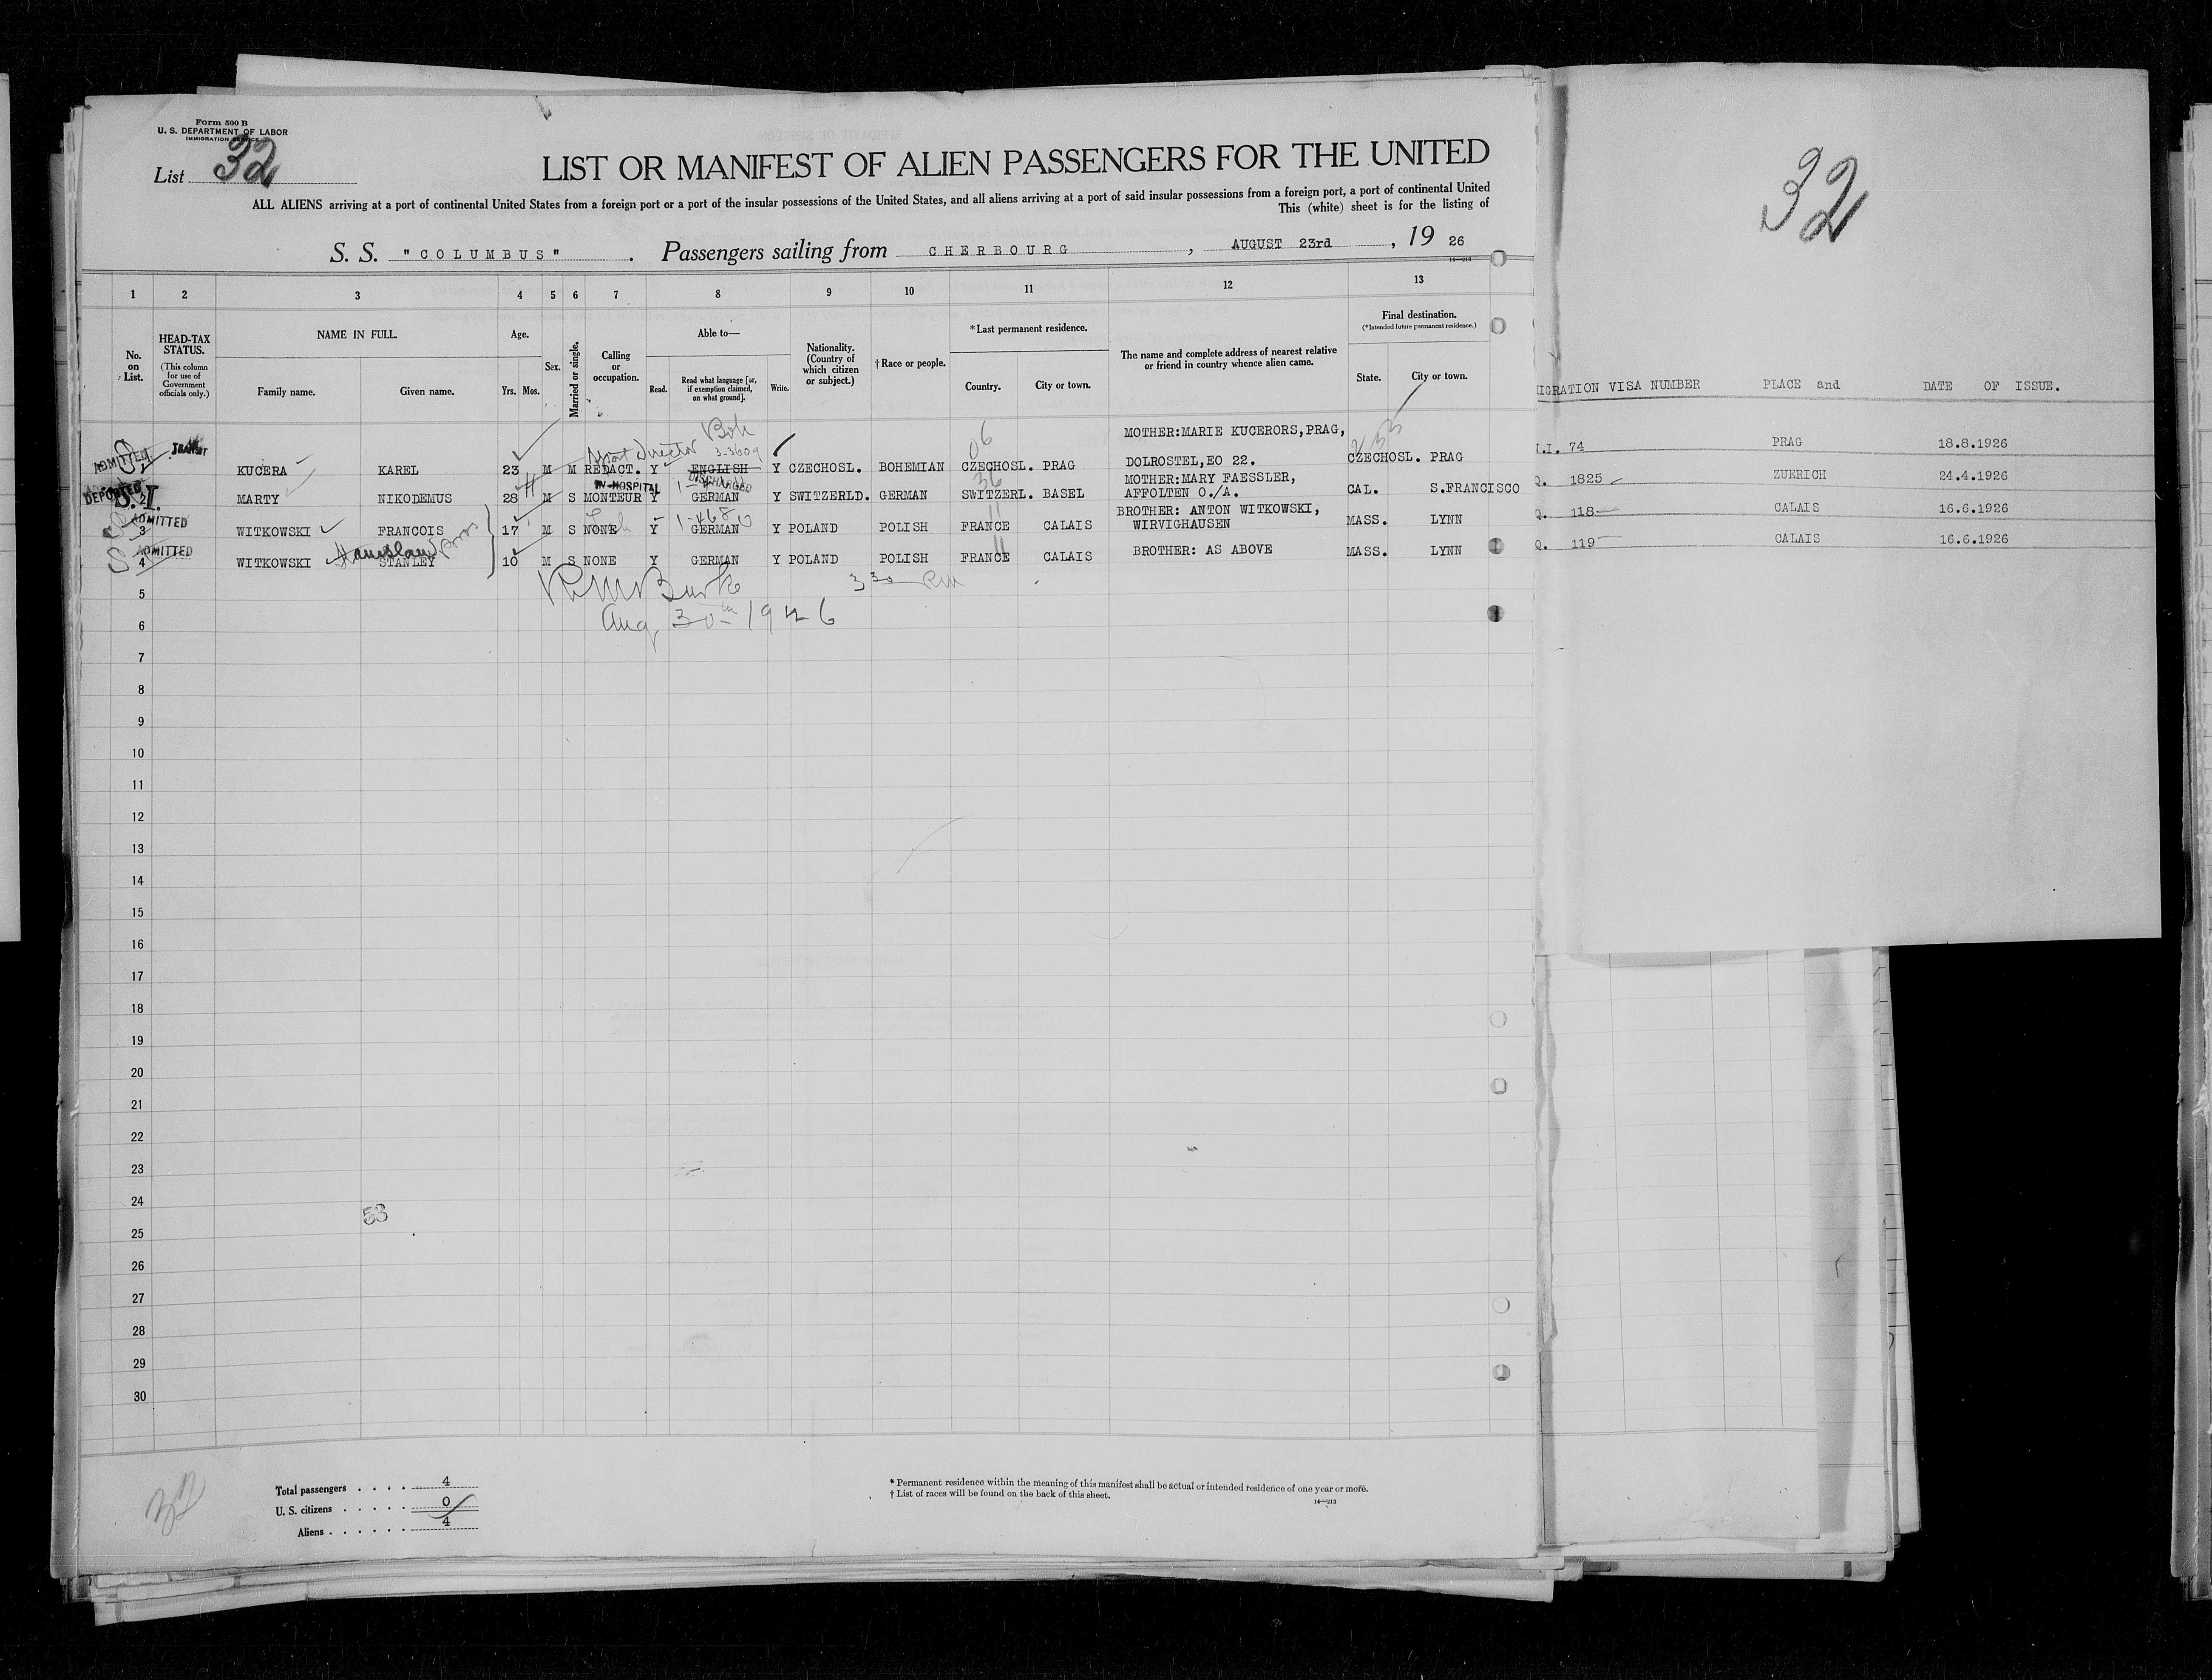 Form 500 B
U. S. DEPARTMENT OF LABOR
IMMIGRATION SERVICE
List 32
LIST OR MANIFEST OF ALIEN PASSENGERS FOR THE UNITED
ALL ALIENS arriving at a port of continental United States from a foreign port or a port of the insular possessions of the United States, and all aliens arriving at a port of said insular possessions from a foreign port, a port of continental United
This (white) sheet is for the listing of
S. S. "COLUMBUS" . Passengers sailing from CHERBOURG , AUGUST 23rd , 19 26
14—213
32
1 2 3 4 5 6 7 8 9 10 11 12 13
No. on List.
HEAD-TAX STATUS.
(This column for use of Government officials only.)
NAME IN FULL.
Family name. Given name.
Age.
Yrs. Mos.
Sex.
Married or single.
Calling or occupation.
Able to—
Read. Read what language [or, if exemption claimed, on what ground]. Write.
Nationality. (Country of which citizen or subject.)
†Race or people.
*Last permanent residence.
Country. City or town.
The name and complete address of nearest relative or friend in country whence alien came.
Final destination.
(*Intended future permanent residence.)
State. City or town.
IGRATION VISA NUMBER PLACE and DATE OF ISSUE.
Boh
director 3-3609
06
ADMITTED TRANSIT
KUCERA KAREL 23 M M REDACT. Y ENGLISH Y CZECHOSL. BOHEMIAN CZECHOSL. PRAG MOTHER:MARIE KUCERORS,PRAG, DOLROSTEL,EO 22. CZECHOSL. PRAG
.I. 74 PRAG 18.8.1926
DEPORTED S.I.
IN HOSPITAL DISCHARGED
36
2 MARTY NIKODEMUS 28 M S MONTEUR Y GERMAN Y SWITZERLD. GERMAN SWITZERL. BASEL MOTHER:MARY FAESSLER, AFFOLTEN O./A. CAL. S.FRANCISCO
Q. 1825 ZUERICH 24.4.1926
ADMITTED
1-4680
11
3 WITKOWSKI FRANCOIS 17 M S NONE Y GERMAN Y POLAND POLISH FRANCE CALAIS BROTHER: ANTON WITKOWSKI, WIRVIGHAUSEN MASS. LYNN
Q. 118 CALAIS 16.6.1926
ADMITTED
Stanislaw Bros
11
4 WITKOWSKI STANLEY 10 M S NONE Y GERMAN Y POLAND POLISH FRANCE CALAIS BROTHER: AS ABOVE MASS. LYNN
Q. 119 CALAIS 16.6.1926
Burke 3 30 PM
Aug 30th 1926
5
6
7
8
9
10
11
12
13
14
15
16
17
18
19
20
21
22
23
24
53
25
26
27
28
29
30
32
Total passengers . . . . 4
U. S. citizens . . . . . 0
Aliens . . . . . . 4
* Permanent residence within the meaning of this manifest shall be actual or intended residence of one year or more.
† List of races will be found on the back of this sheet.
14—213